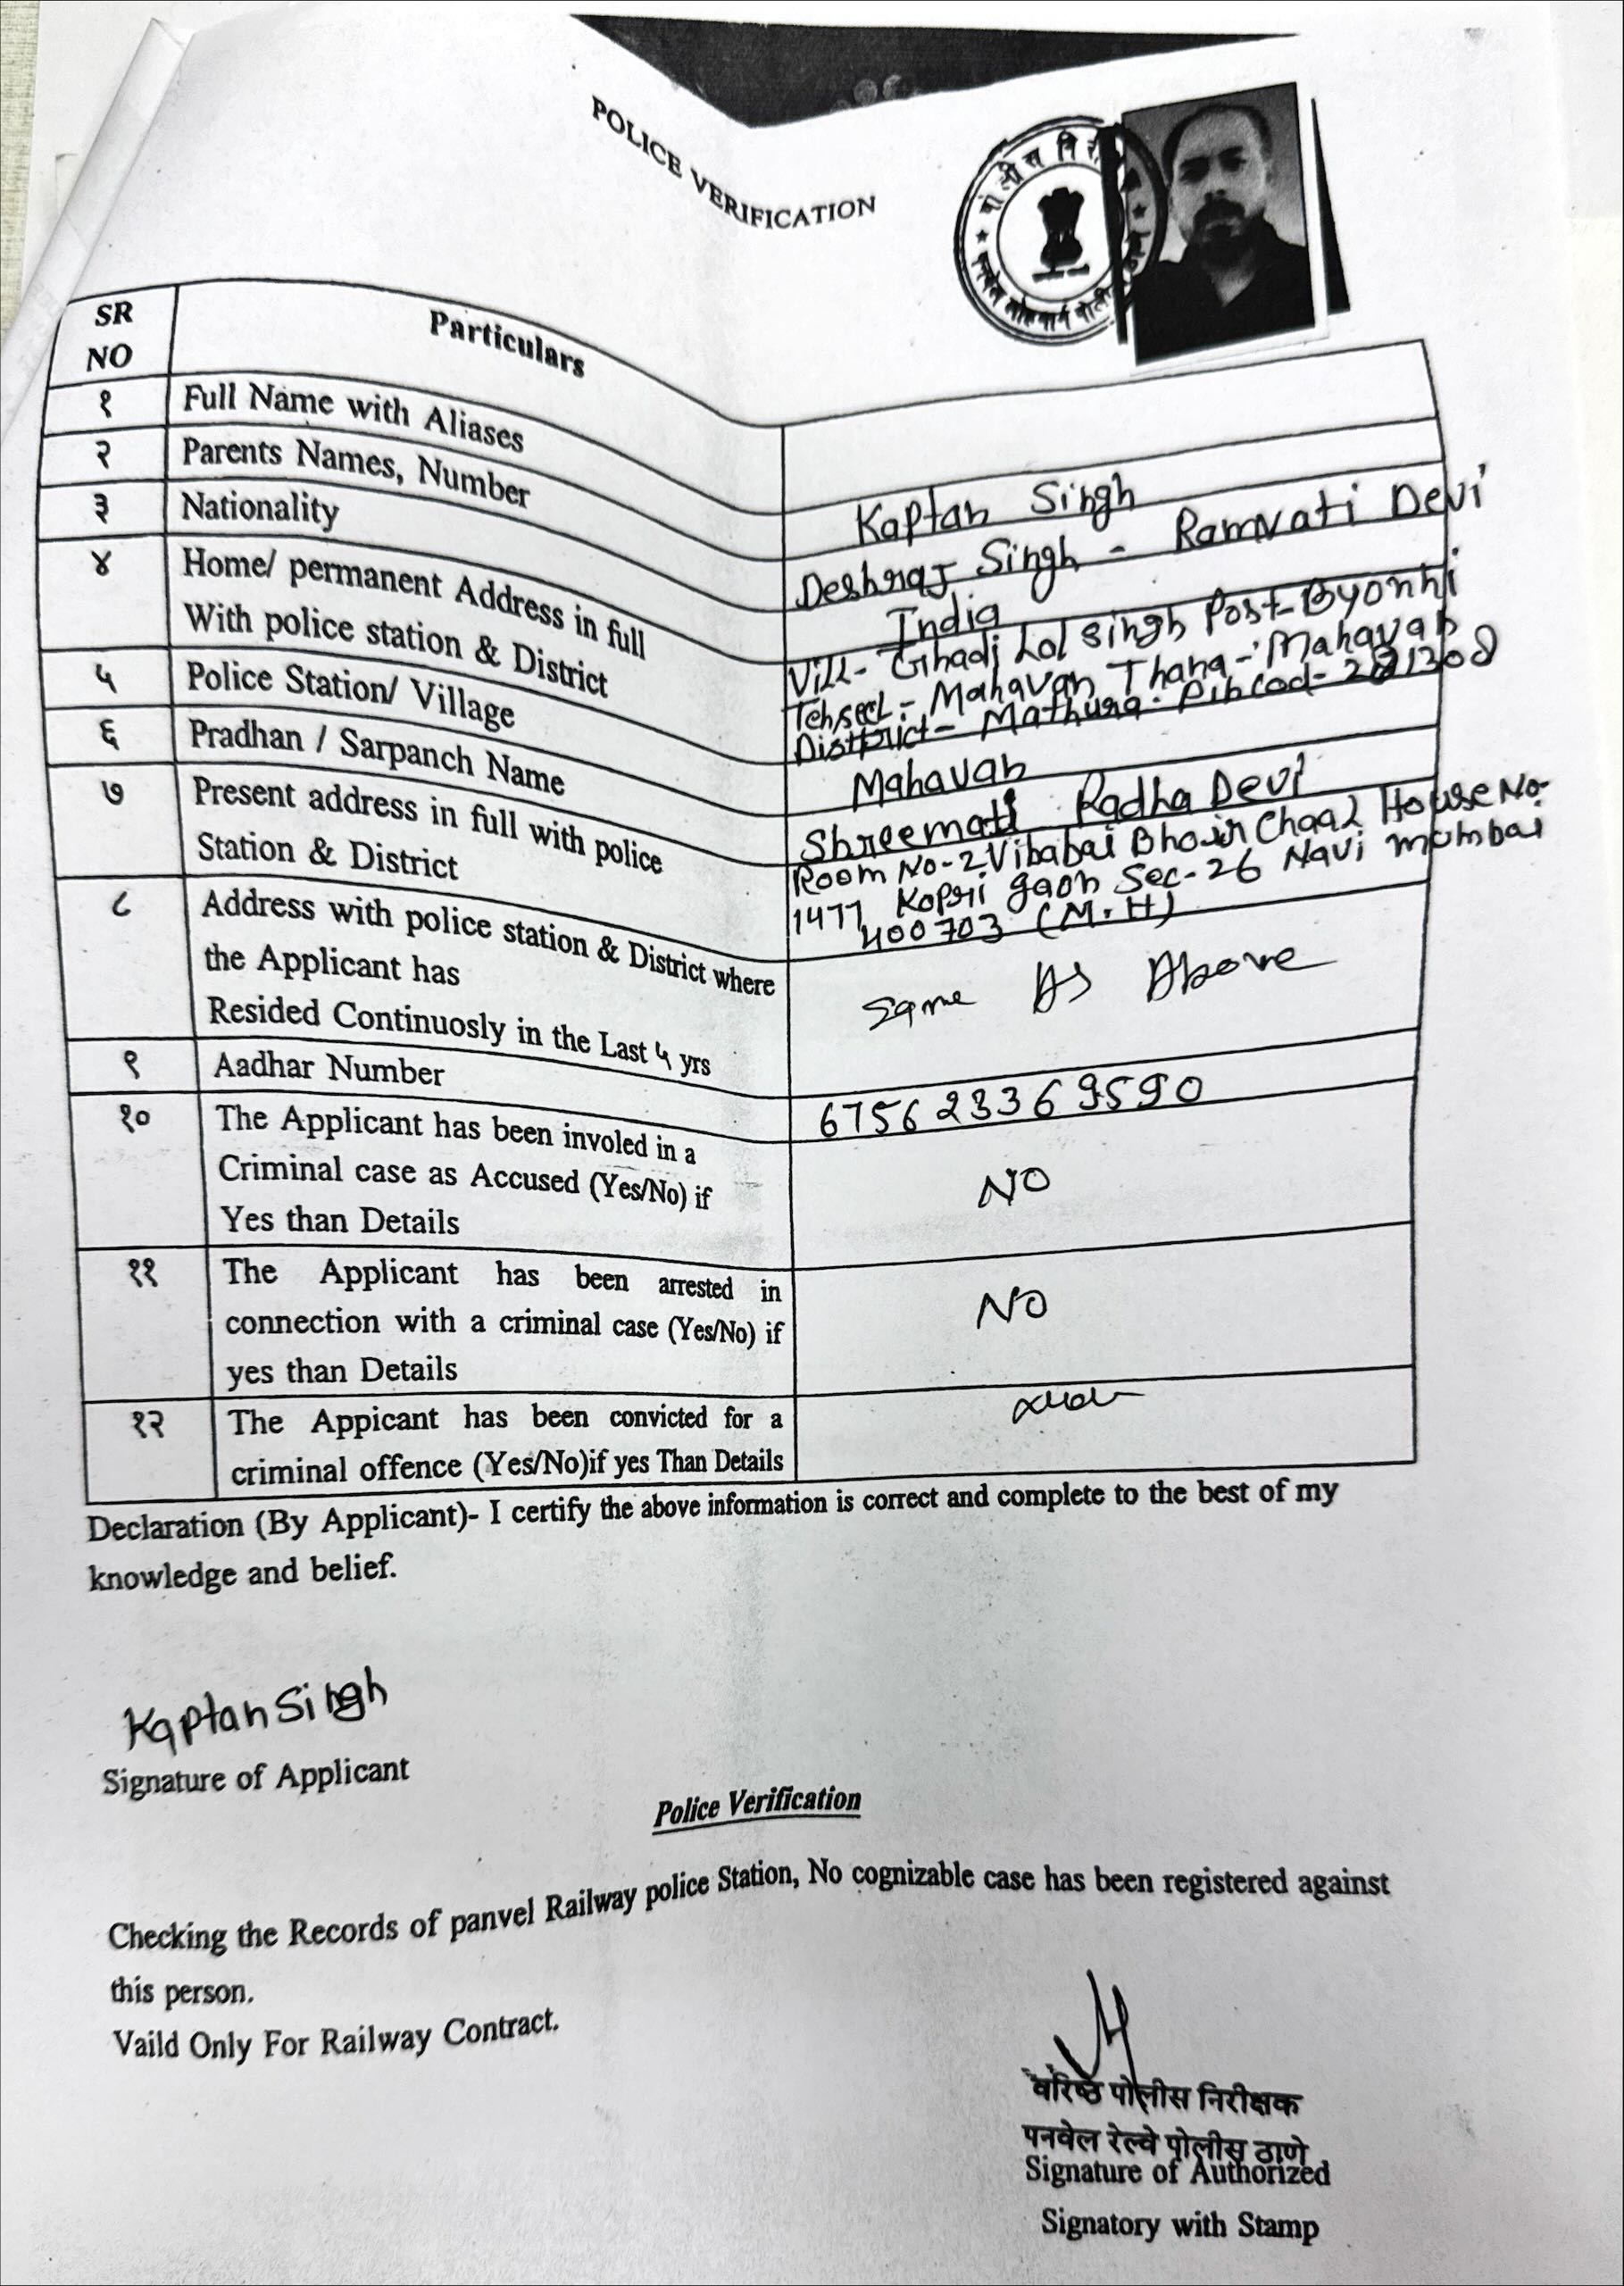 POLICE VERIFICATION
पोलीस निरी
पनवेल लोहमार्ग पोली
SR NO Particulars
१ Full Name with Aliases Kaptan Singh
२ Parents Names, Number Deshraj Singh - Ramvati Devi
३ Nationality India
४ Home/ permanent Address in full Vill- Ghadi Lol singh Post-Byonhi
With police station & District Tehseel:- Mahavan Thana-'Mahavan
District- Mathura. Pincod- 281308
५ Police Station/ Village Mahavan
६ Pradhan / Sarpanch Name Shreemati Radha Devi
७ Present address in full with police Room No-2 Vibabai Bhoir Chaal House No-
Station & District 1477 Kopri gaon Sec-26 Navi mumbai
400703 (M.H)
८ Address with police station & District where
the Applicant has Same As Above
Resided Continuosly in the Last ५ yrs
९ Aadhar Number 675623369590
१० The Applicant has been involed in a
Criminal case as Accused (Yes/No) if NO
Yes than Details
११ The Applicant has been arrested in
connection with a criminal case (Yes/No) if NO
yes than Details
१२ The Appicant has been convicted for a
criminal offence (Yes/No)if yes Than Details
Declaration (By Applicant)- I certify the above information is correct and complete to the best of my
knowledge and belief.
Kaptan Singh
Signature of Applicant
Police Verification
Checking the Records of panvel Railway police Station, No cognizable case has been registered against
this person.
Vaild Only For Railway Contract.
वरिष्ठ पोलीस निरीक्षक
पनवेल रेल्वे पोलीस ठाणे
Signature of Authorized
Signatory with Stamp